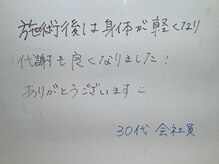 施術後は身体が軽くなり
代謝も良くなりました!
ありがとうございます
30代 会社員